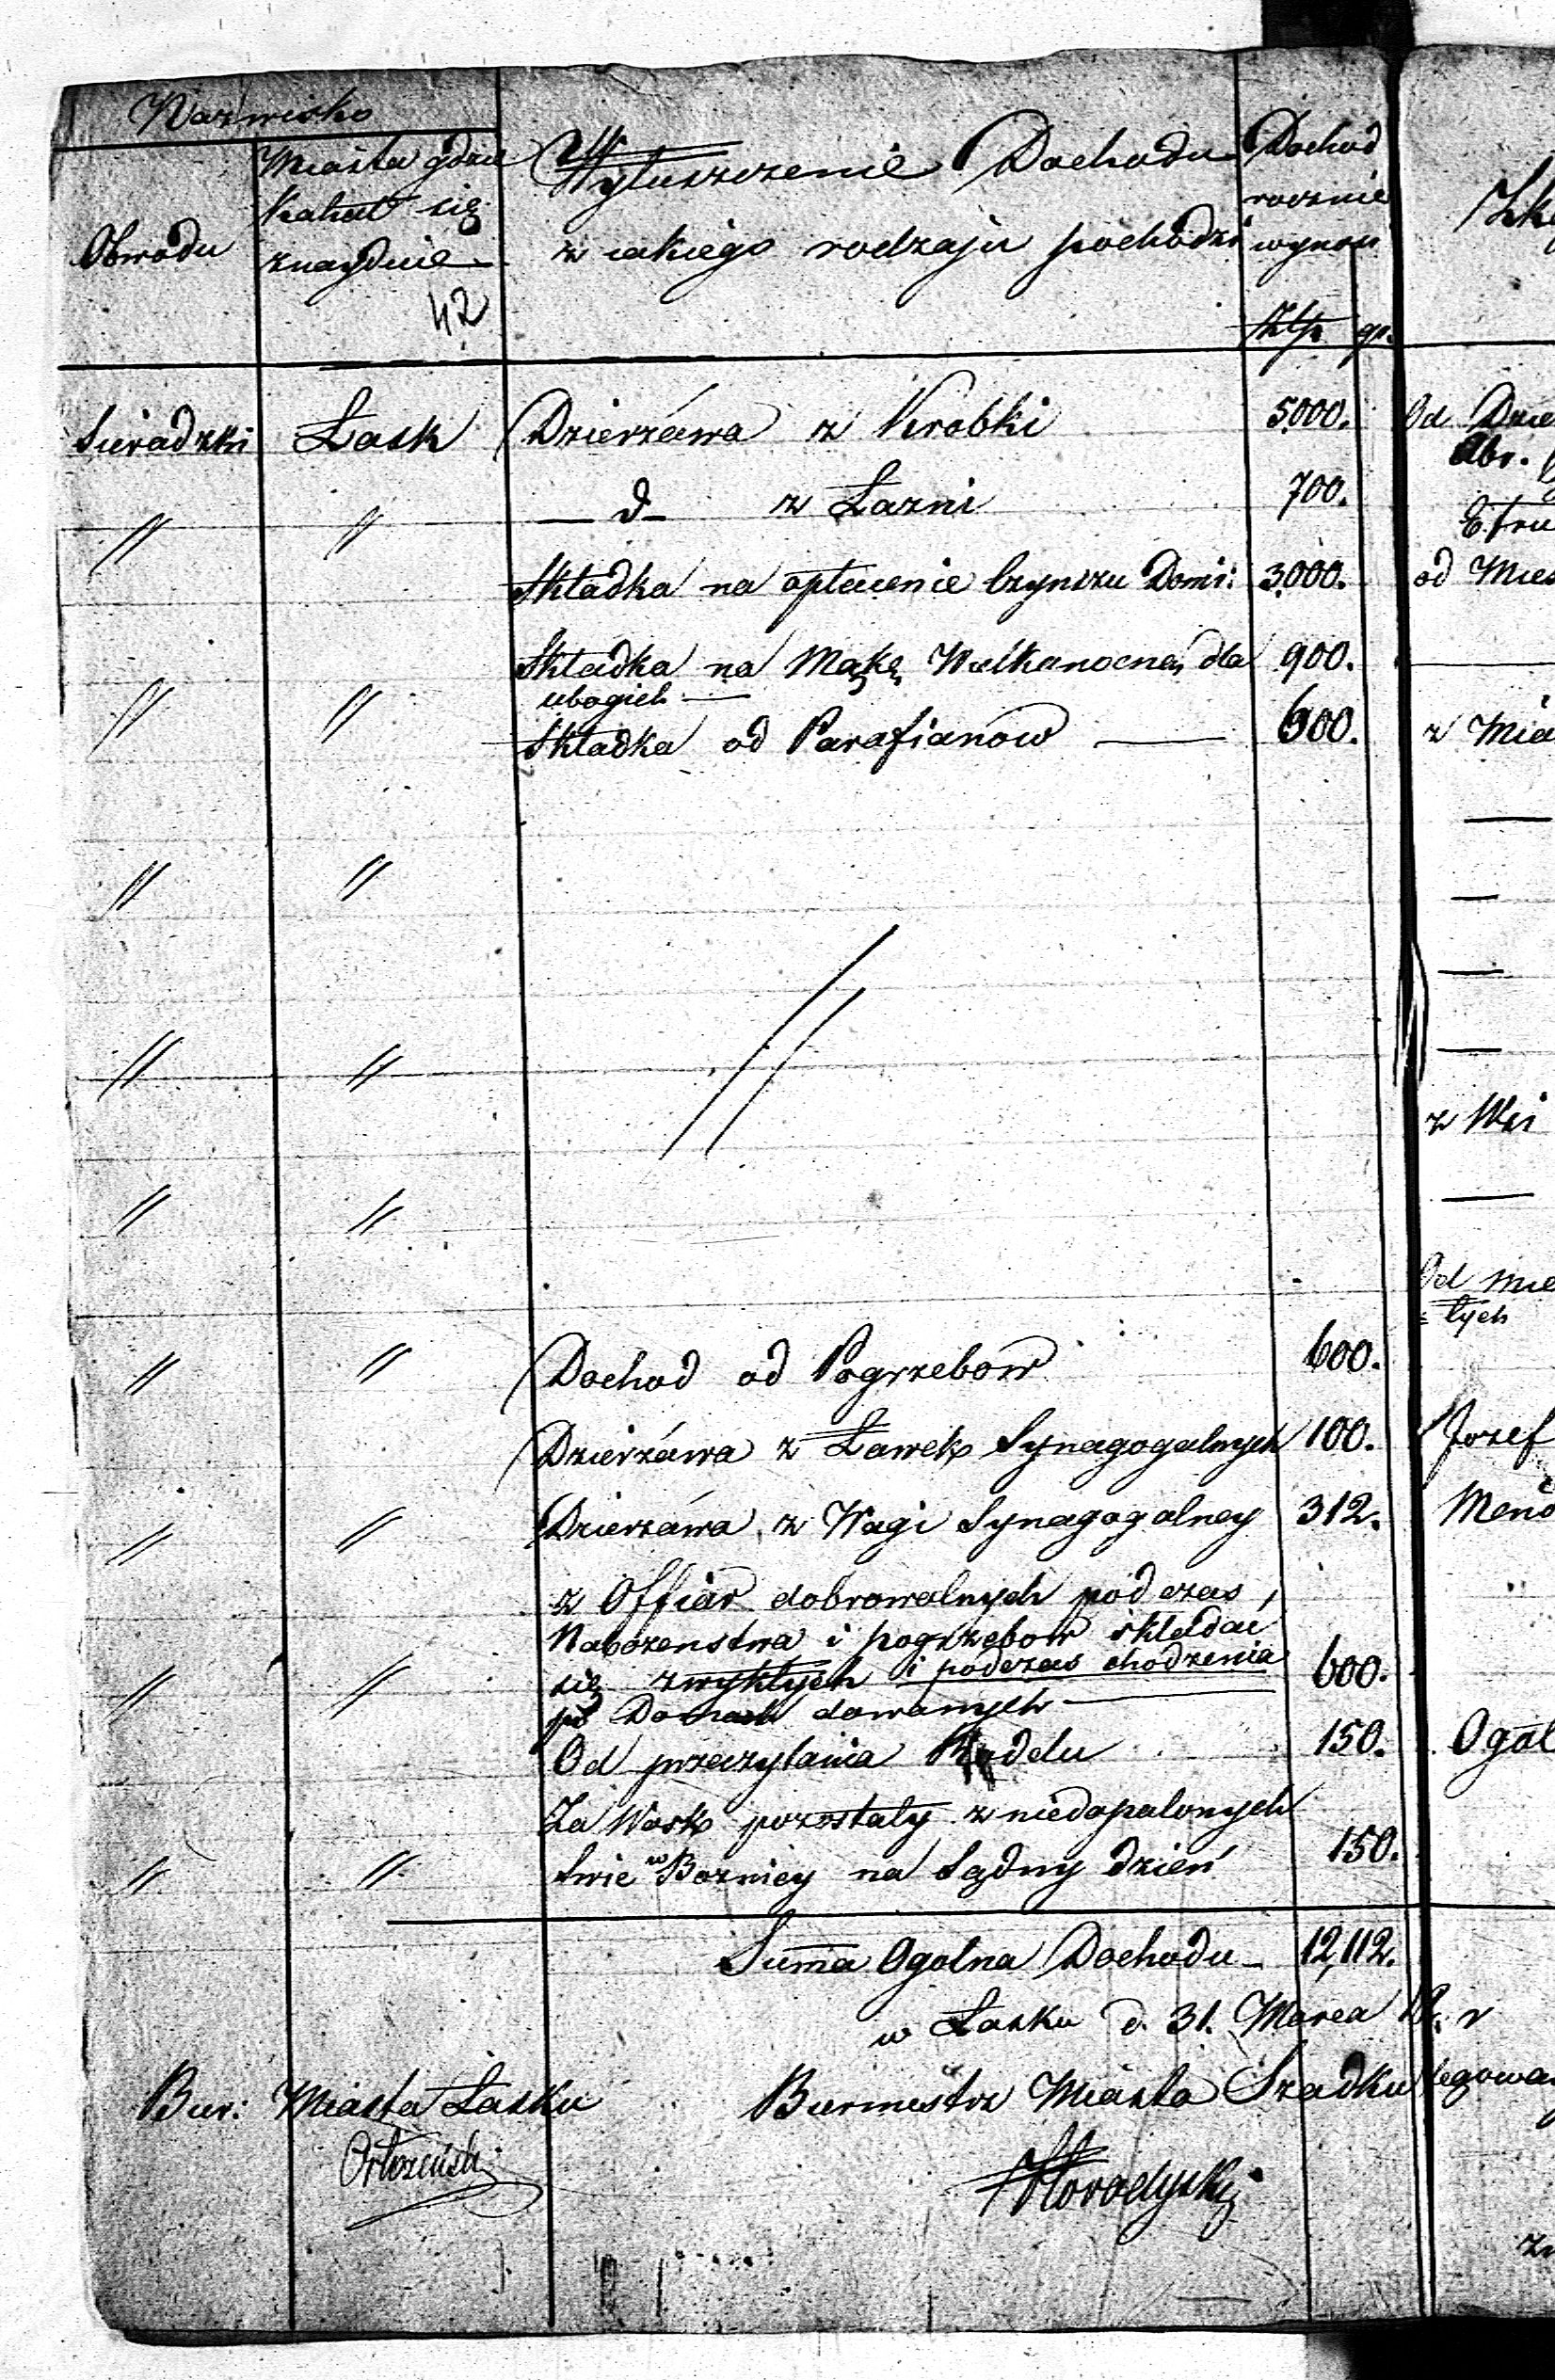 Nazwisko
Obwodu
Miasta gdzie
Kahał się
znayduie
42
Wyłuszczenie Dochodu
z iakiego rodzaju pochodzi
Dochod
rocznie
wynosi
Złp gr.
Sieradzki Łask Dzierżawa z Krobki 5000. Od Dzie
Abr.
" " — d — z Łazni 700.
Składka na opłacenie Czynszu Domi: 3000. od Mies
Składka na Mąkę Wielkanocną dla 900.
ubogich —
" " Składka od Parafianow — 600. z Mia
" "
" "
z Wsi
" "
Od Mie
= łych
" " Dochod od Pogrzebow 600.
Dzierżawa z Ławek Synagogalnych 100. Jozef
" " Dzierżawa z Wagi Synagogalney 312. Mend
z Offiar dobrowolnych podczas
Nabozenstwa i pogrzebow składać
" " się zwykłych i podczas chodzenia 600.
po Domach dawanych —
Od przeczytania Rodału 150. Ogol
Za Wosk pozostały z niedopalonych
" " Swie w Boznicy na Sądny dzień 150.
Suma Ogolna Dochodu - 12,112.
w Łasku d. 31. Marca r
Bur: Miasta Łasku Burmistrz Miasta Szadku
Horodyski